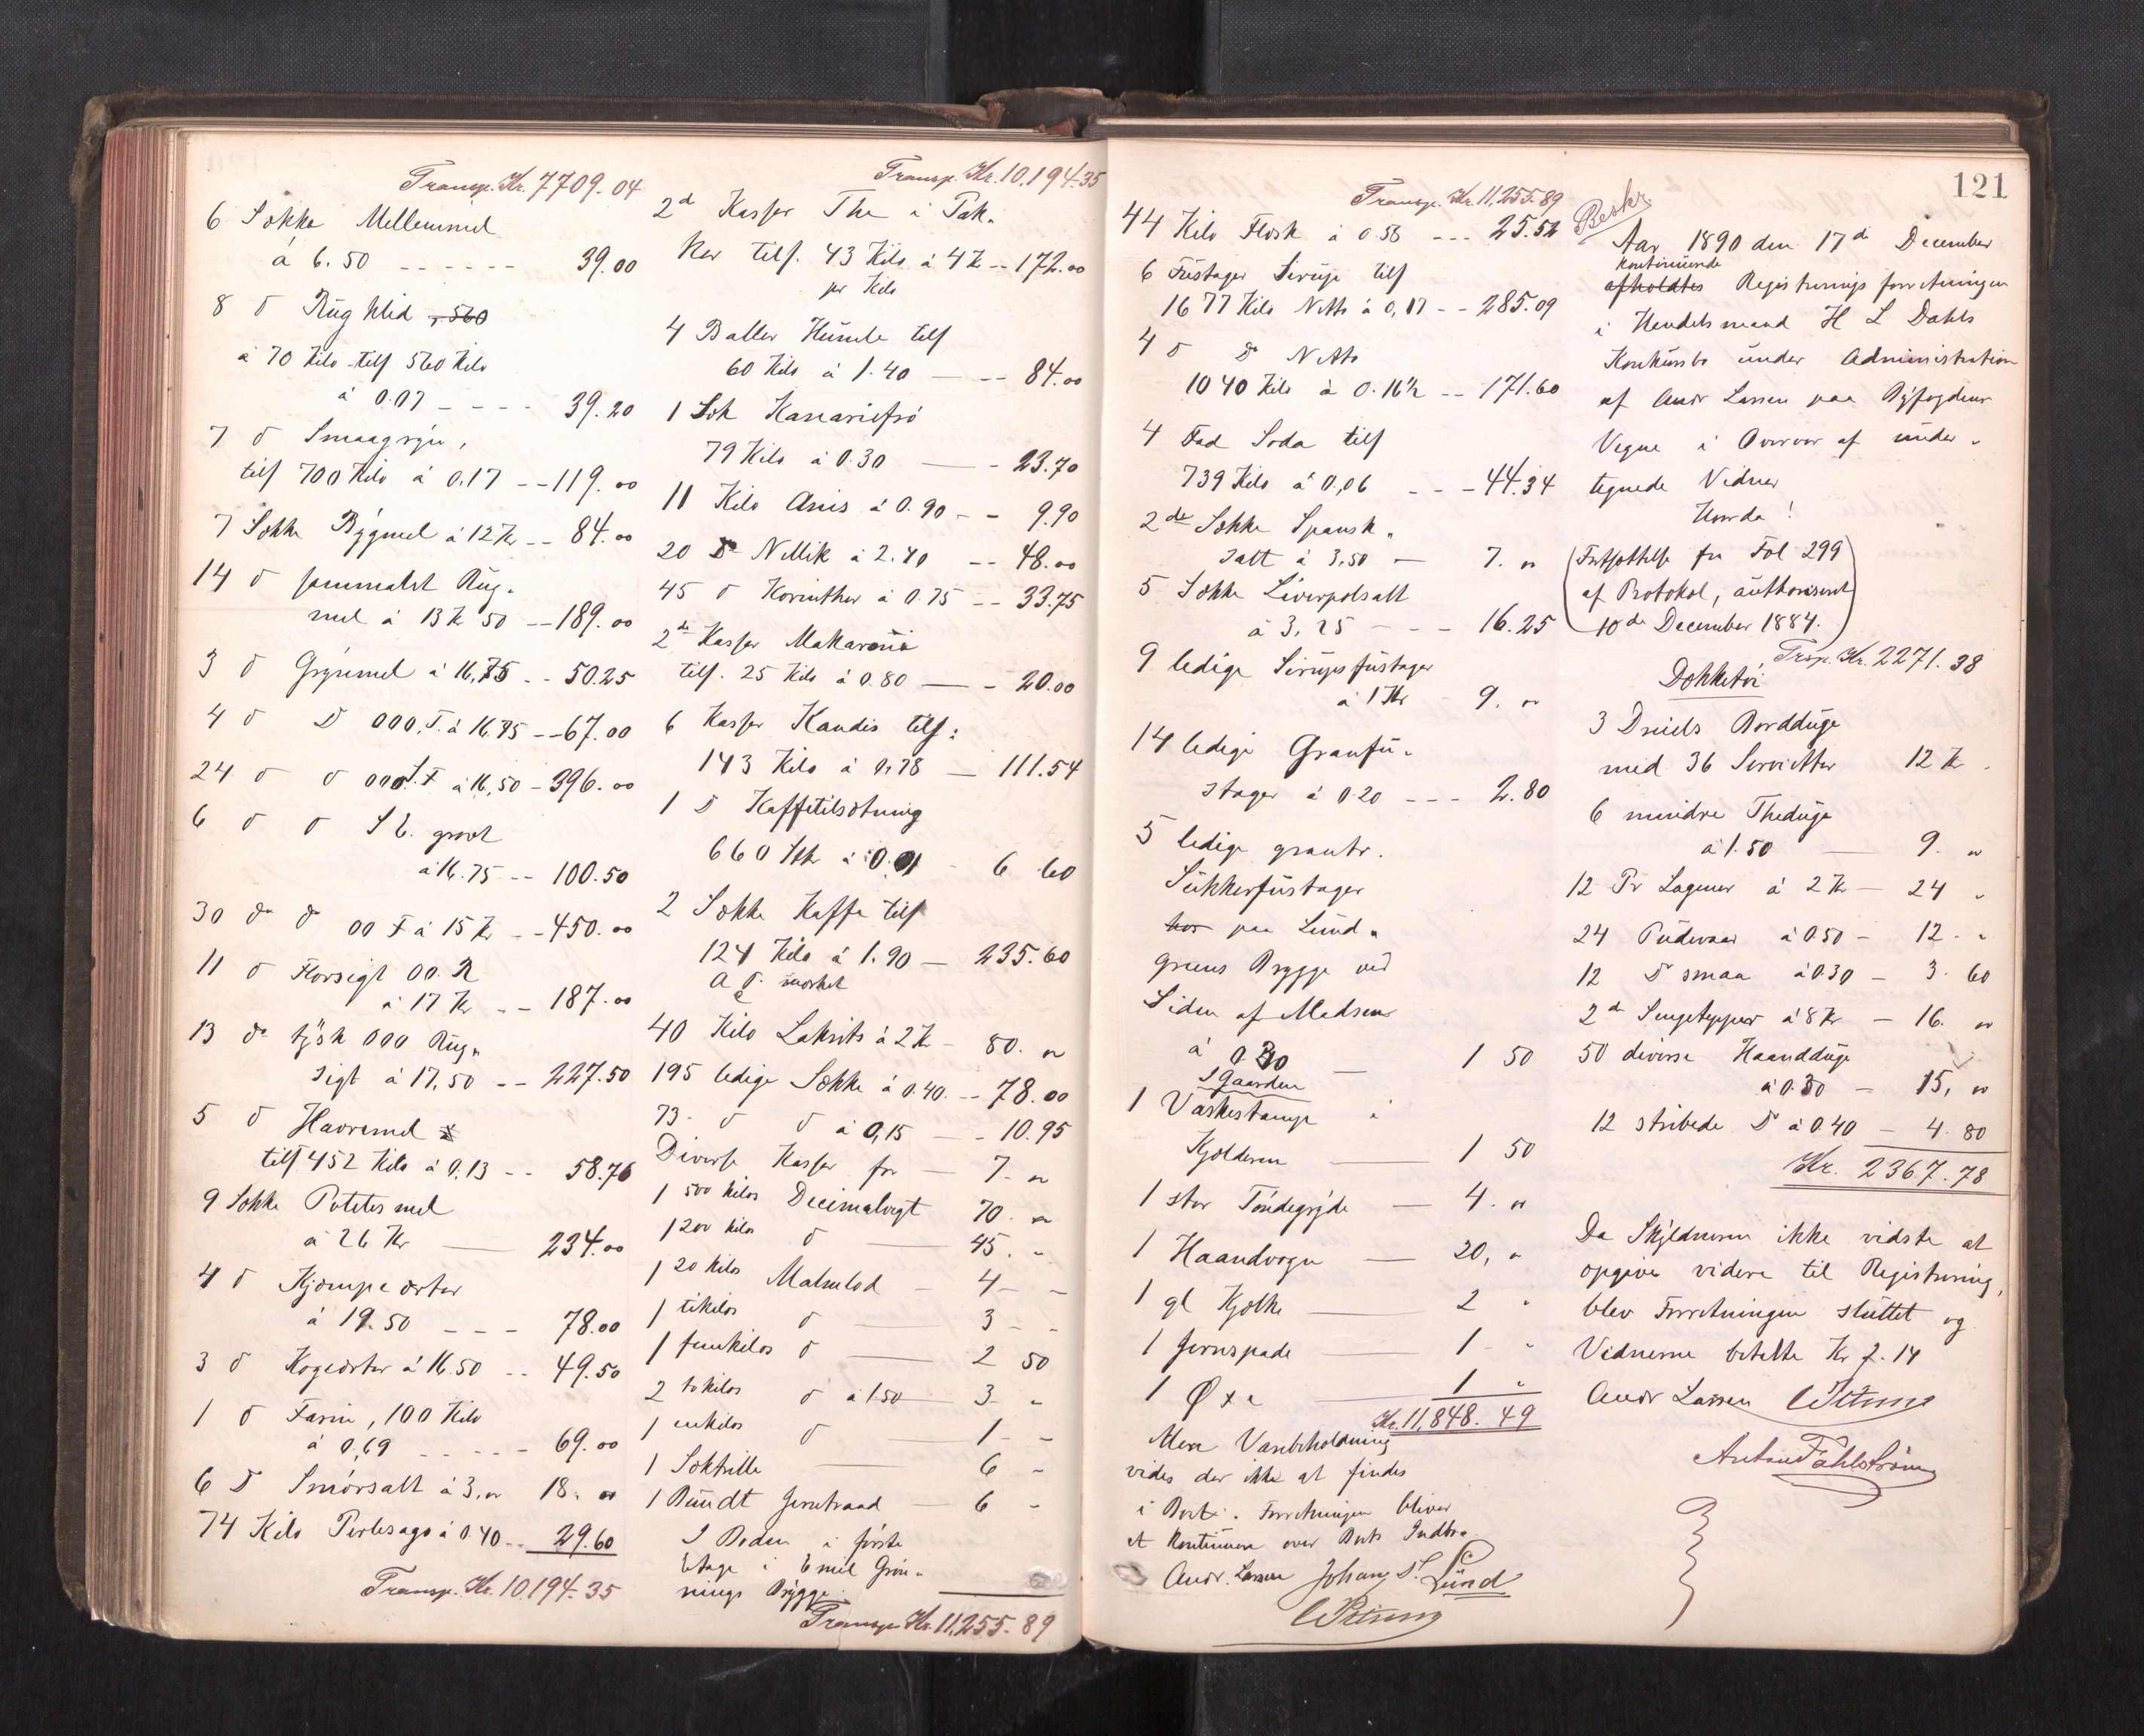 Transp. Kr. 7709.04
6 Sække Mellemmel
à 6.50 - - - - - - 39.00
8 d Rüg klid , 560
à 70 Kilo tils 560 Kilo
à 0.07 - - - - 39.20
7 d Smaagryn,
tils 700 Kilo à 0.17 - - 119.00
7 Sække Bÿgmel à 12 Kr - - 84.00
14 d sammalet Rüg-
mel à 13 Kr 50 - - 189.00
3 d Grynmel à 16,75 - - 50.25
4 d D 000.F. à 16.75 - - 67.00
24 d d 000 S.F à 16,50 - 396.00
6 d d S.C. grovt
à 16.75 - - 100.50
30 do do 00 F à 15 Kr - - 450.00
11 d Florsigt 00. R
à 17 Kr - - 187.00
13 do tÿsk 000 Rüg-
sigt à 17,50 - - 227.50
5 d Havremel
tils 452 Kilo à 0.13 - - 58.76
9 Sække Potetesmel
à 26 Kr — 234.00
4 d Kjæmpe ærter
à 19.50 - - - 78.00
3 d Kogeærter à 16.50 - - 49.50
1 d Farin, 100 Kilo
à 0,69 - - - - - 69.00
6 D Smørsalt à 3,00 18.00
74 Kilo Perlesago à 0.40 - - 29.60
Transp. Kr. 10,194.35
Transp. Kr. 10,194.35
2de Kasser The i Pak-
ker tils. 43 Kilo à 4 Kr - - 172.00
pr Kilo
4 Baller Humle tils
60 Kilo à 1.40 — - - 84.00
1 Sæk Kanariefrø
79 Kilo à 0.30 — - 23.70
11 Kilo Anis à 0.90 - - 9.90
20 D Nellik à 2.40 - - 48.00
45 d Korinther à 0.75 - - 33.75
2de Kasser Makaroni
tils. 25 Kilo à 0.80 — - 20.00
6 Kasser Kandis tils:
143 Kilo à 0,78 — 111.54
1 D Kaffetilsætning
660 Stk à 0.01 - 6 60
2 Sække Kaffe tils
124 Kilo à 1.90 — 235.60
mærket
40 Kilo Lakrits à 2 Kr - 80. "
195 ledige Sække à 0.40. - - 78.00
73. d d à 0,15 — - 10.95
Diverse Kasser for — 7. "
1 500 kilos Decimalvægt 70. "
1 200 kilos d — 45. "
1 20 kilos Malmlod - 4 - -
1 tikilos d — 3 - -
1 femkilos d — 2 50
2 tokilos d à 1.50 — 3. "
1 enkilos d — 1 - -
1 Sæktrille — 6 -
1 Bundt Jerntraad — 6 -
I Boden i første
Etage i Emil Grøn-
nings Brÿgge.
Transp. Kr. 11,255.89
121
Transp. Kr. 11,255.89
44 Kilo Flesk à 0.58 - - - 25.52
6 Füstager Sirup tils
1677 Kilo Netto à 0,17 - - 285.09
4 d D Netto
1040 Kilo à 0.16½ - - 171.60
4 Fad Soda tils
739 Kilo à 0,06 - - - 44.34
2de Sække Spansk-
salt à 3,50 — 7. "
5 Sække Liverpolsalt
à 3,25 - - - 16.25
9 ledige Sirupsfüstager
à 1 Kr 9. "
14 ledige Granfü-
stager à 0.20 - - - 2.80
5 ledige grantr.
Sükkerfüstager
hos paa Lund-
greens Brygge ved
Siden af Madsens
à 0.30 — 1 50
I Gaarden
1 Vaskestampe i
Kjælderen — 1 50
1 stor Tøndegrÿde — 4. "
1 Haandvogn — 20, "
1 gl Kjælke — 2 "
1 Jernspade — 1 "
1 Øxe — 1 "
Kr. 11,848.49
Mere Varebeholdning
vides der ikke at findes
i Boet. Forretningen bliver
at kontinuere over Boets Indbo.
Andr. Lassen Johan Lund
Beskr.
Aar 1890 den 17de December
kontinuerede
afholdtes Registreringsforretningen
i Handelsmand H L Dahls
Konkursbo under Administration
af Andr Lassen paa Bÿfogdens
Vegne i Overvær af under-
tegnede Vidner
Hvorda!
(Fortsættelse fra Fol 299
af Protokol, authoriseret
10de December 1884.)
Trsp. Kr. 2271.38
Dækketøi
3 Dreiels Borddüge
med 36 Servietter 12 Kr.
6 mindre Thedüge
à 1.50 — 9. "
12 Pr Lagener à 2 Kr — 24 "
24 Püdevaar à 0.50 - 12. "
12 D smaa à 0.30 - 3.60
2de Sengetepper à 8 Kr - 16. "
50 diverse Haanddüge
à 0.30 - 15, "
12 stribede D à 0.40 - 4.80
Kr. 2367.78
Da Skÿldneren ikke vidste at
opgive videre til Registrering,
blev Forretningen sluttet og
Vidnerne betalte Kr 2.14
Andr Lassen
Anton Fahlstrøm